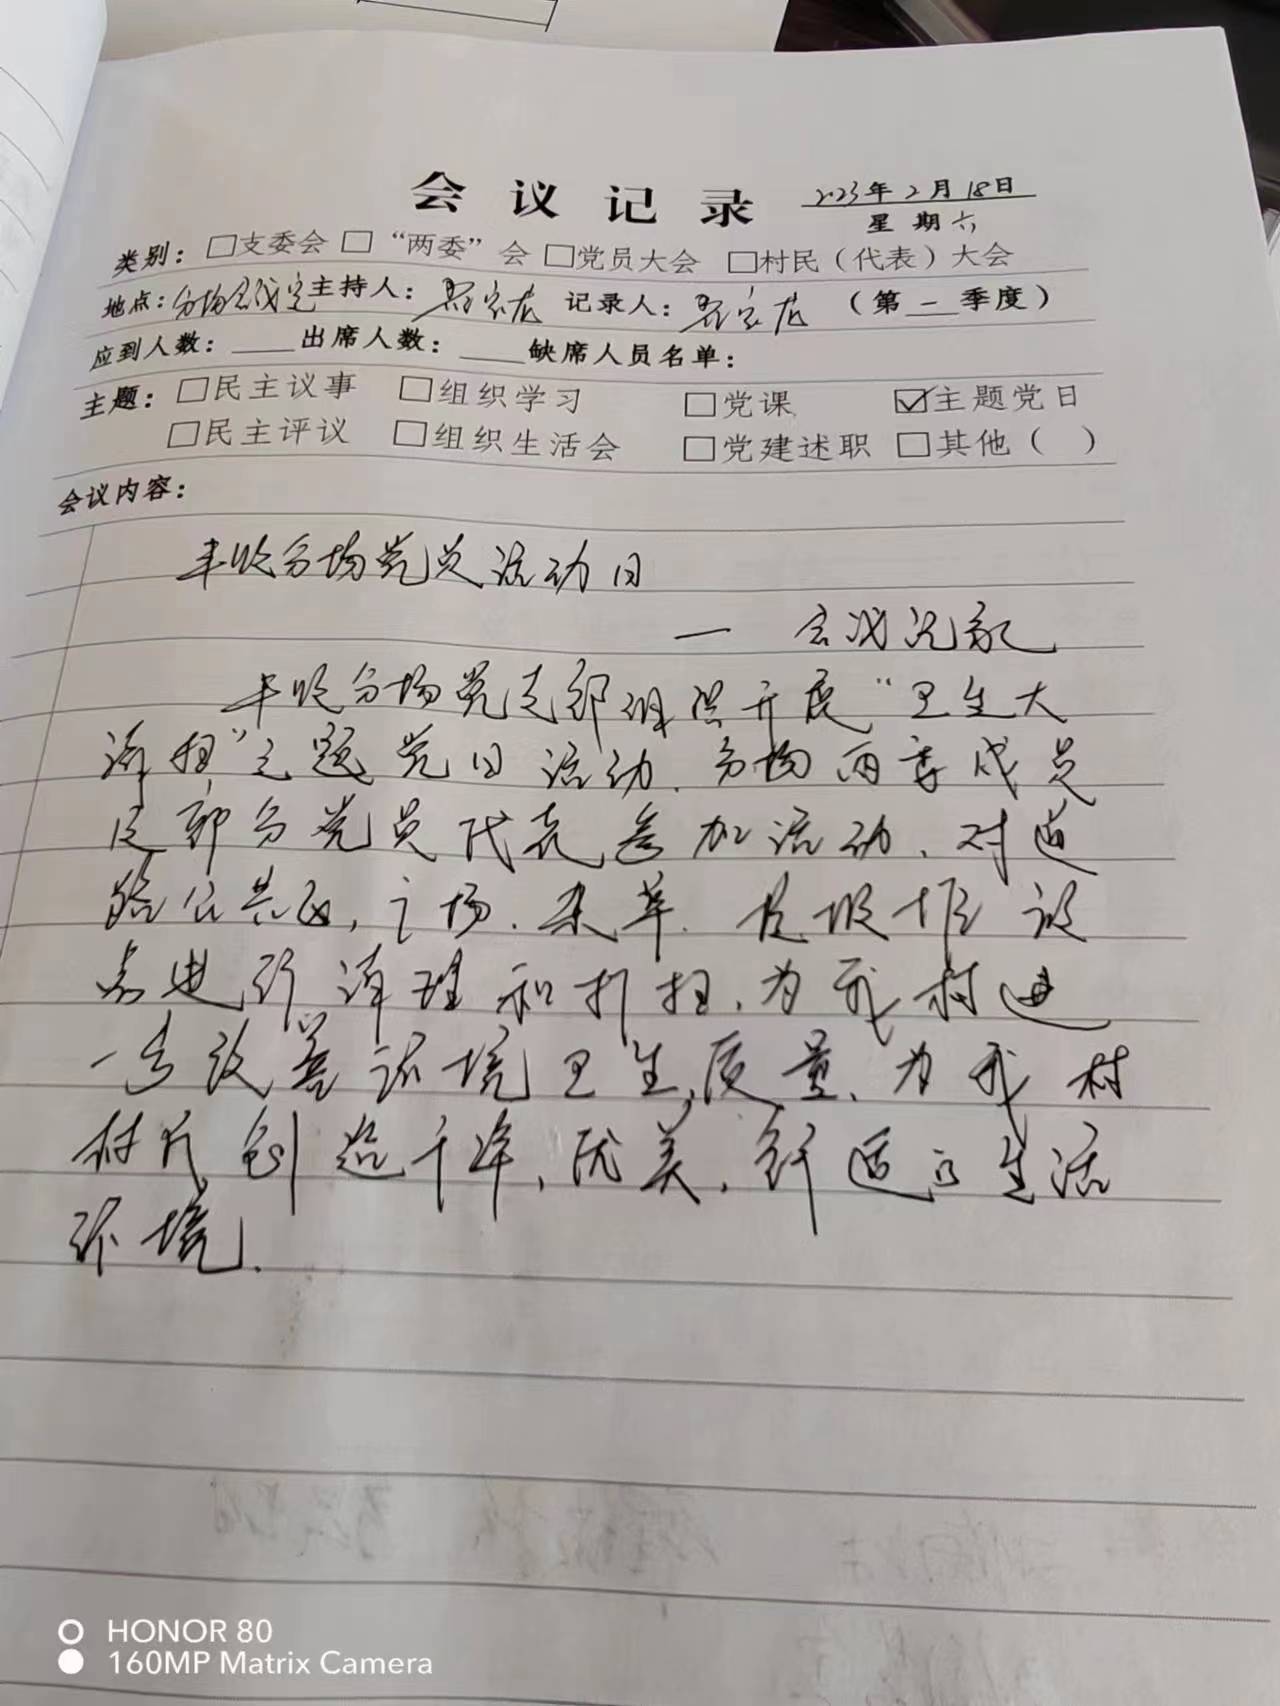 会议记录
2023年2月18日
星期六
类别：□支委会 □“两委”会 □党员大会 □村民（代表）大会
地点：分场会议室 主持人： 记录人： （第一季度）
应到人数：____出席人数：____缺席人员名单：
主题：□民主议事 □组织学习 □党课 ☑主题党日
□民主评议 □组织生活会 □党建述职 □其他（ ）
会议内容：
丰收分场党员活动日
— 会议记录
丰收分场党支部组织开展“卫生大
清扫”主题党日活动、分场两委成员
及部分党员代表参加活动、对道
路公共区，广场、杂草、垃圾堆放
点进行清理和打扫、为我村进
一步改善环境卫生，质量、为我村
村民创造干净、优美、舒适的生活
环境.
HONOR 80
160MP Matrix Camera